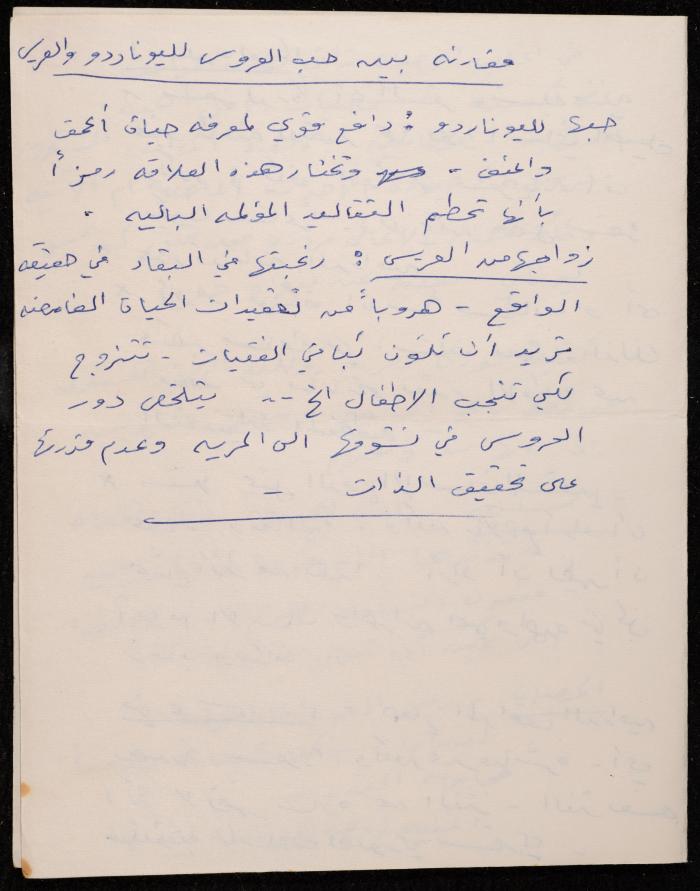 مقارنه بين حب العروس لليوناردو والعريس
حبها لليوناردو : دافع قوي لمعرفه حياة أعمق
واعنف - وتختار هذه العلاقه رمزاً
بأنها تحطم التقاليد المؤلمه الباليه .
زواجها من العريس : رغبتها في البقاء في حقيقه
الواقع - هروباً من تعقيدات الحياة الغامضه
تريد أن تكون كباقي الفتيات - تتزوج
لكي تنجب الاطفال الخ -- يتلخص دور
العروس في تشوقها الى الحريه وعدم قدرتها
على تحقيق الذات